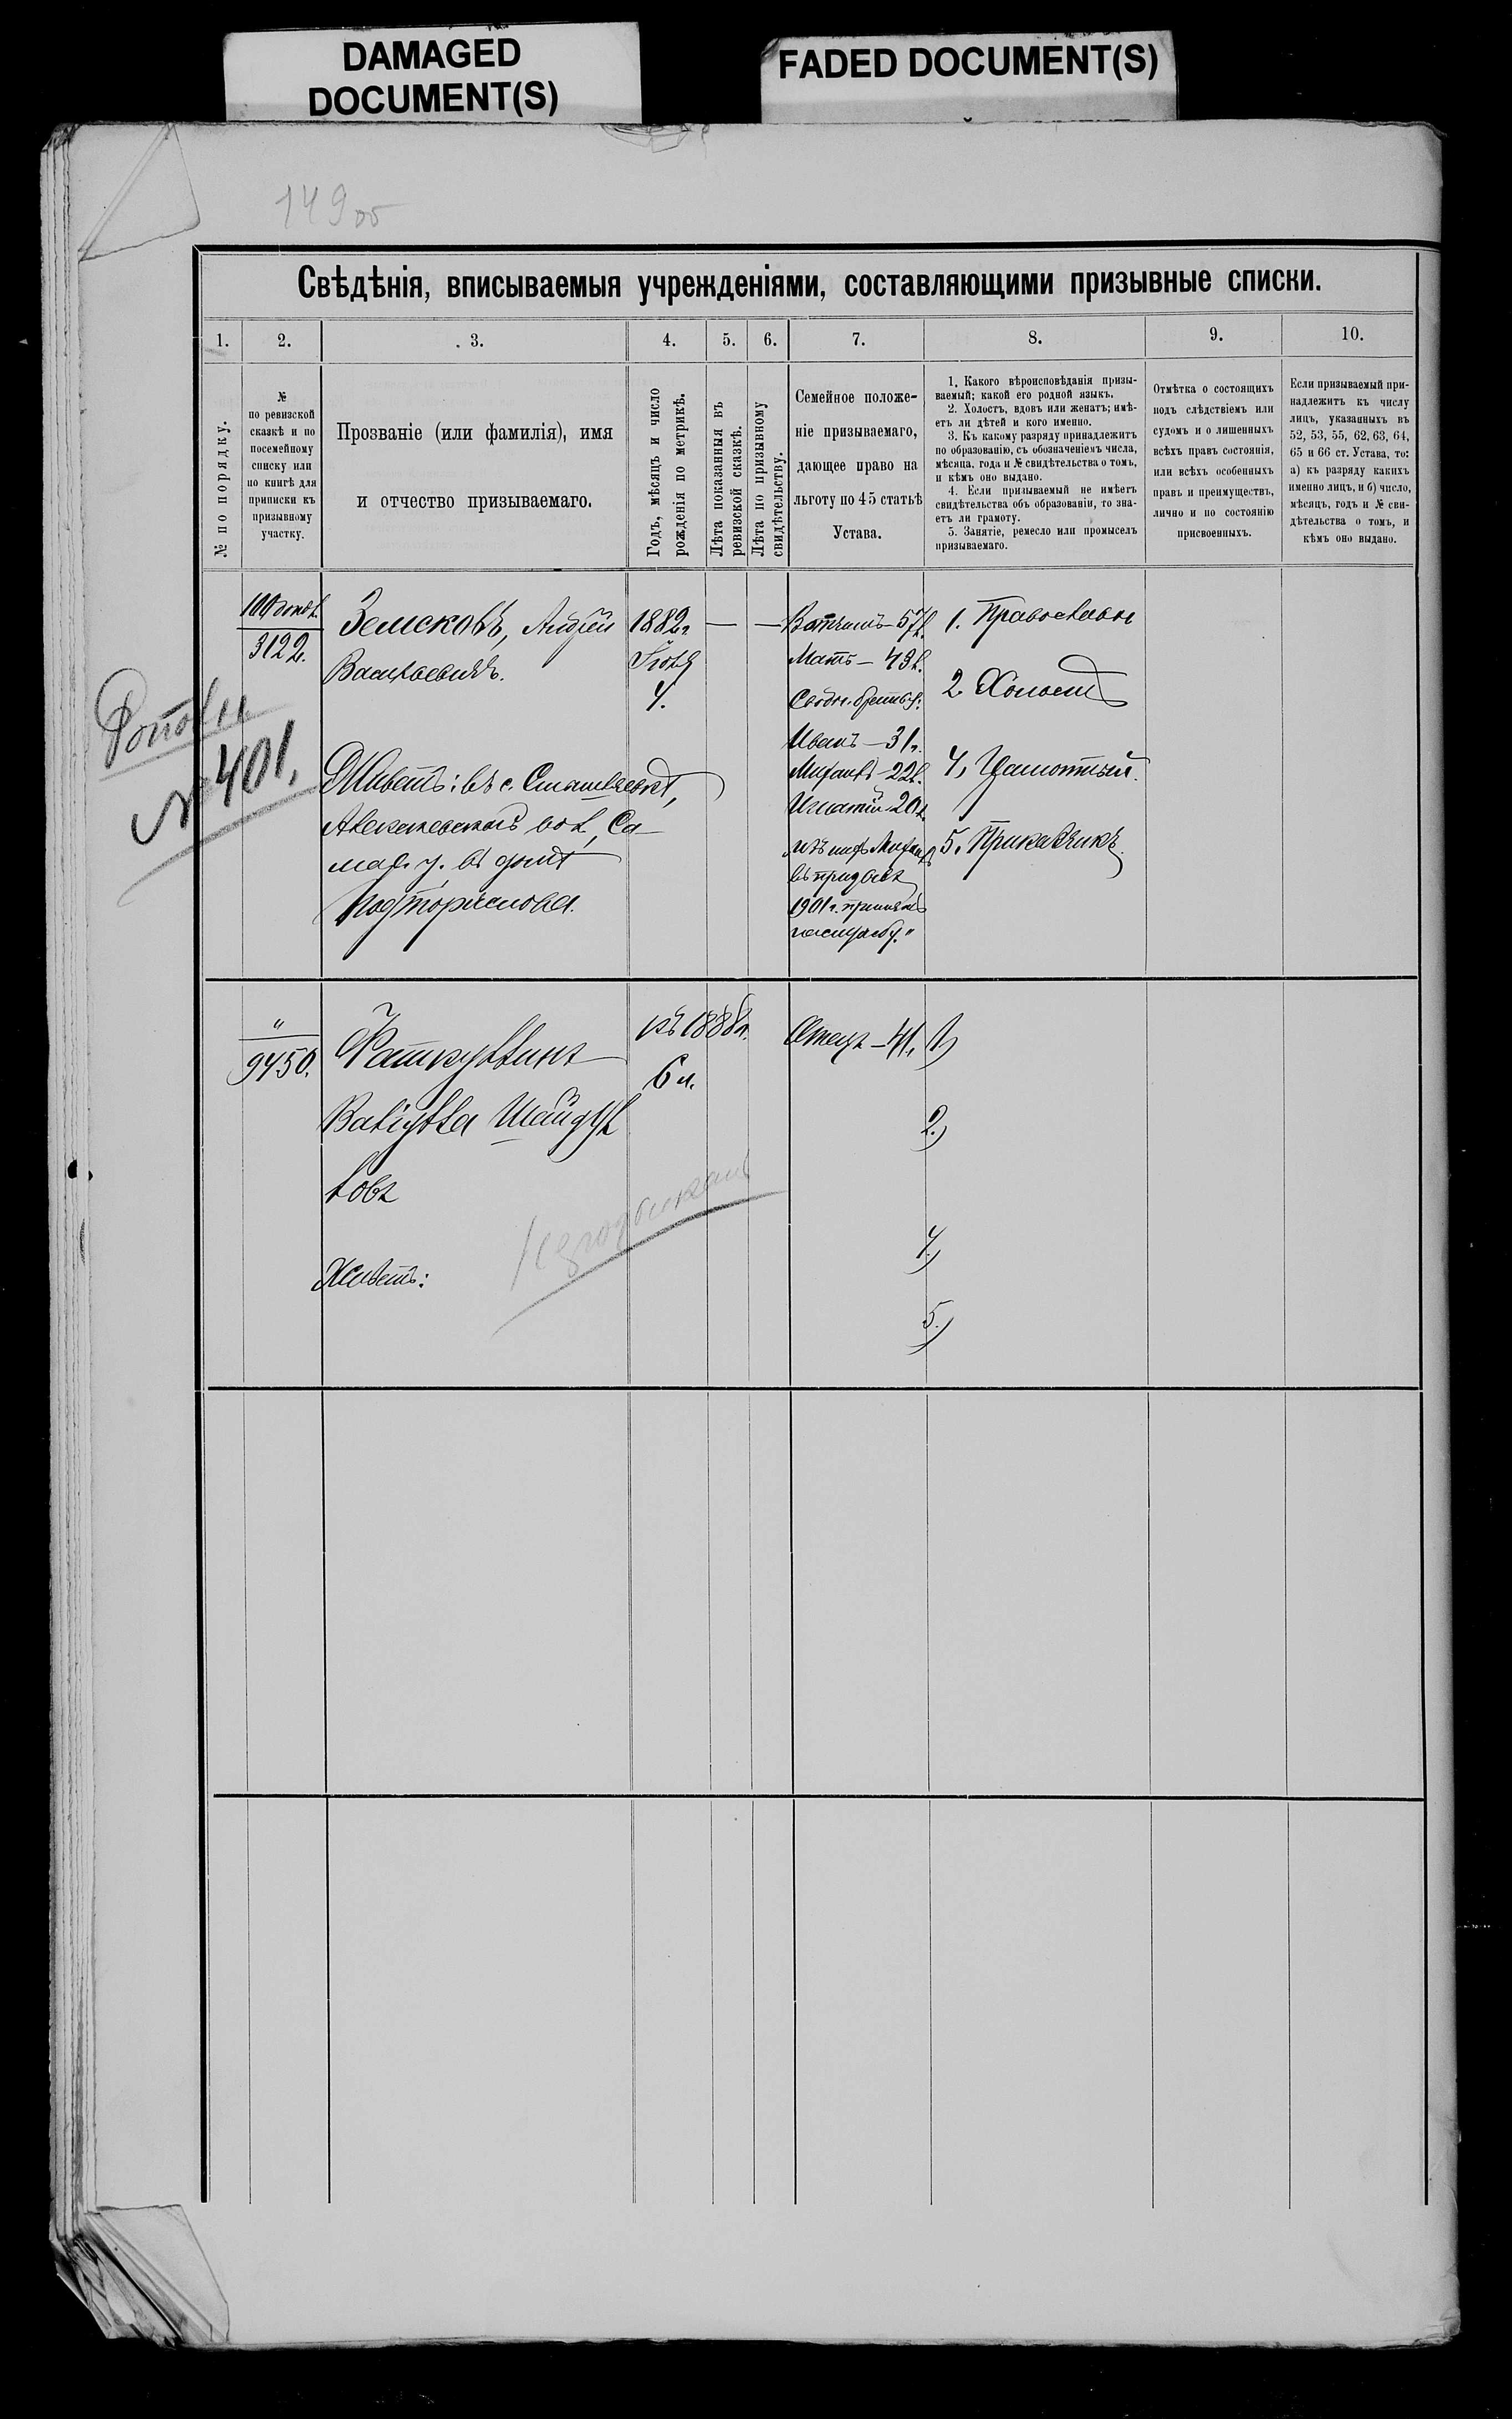 DAMAGED
DOCUMENT(S)
FADED DOCUMENT(S)
149 об
Свѣдѣнія, вписываемыя учрежденіями, составляющими призывные списки.
1.
2.
3.
4.
5.
6.
7.
8.
9.
10.
№ по порядку.
№
по ревизской
сказкѣ и по
посемейному
списку или
по книгѣ для
приписки къ
призывному
участку.
Прозваніе (или фамилія), имя
и отчество призываемаго.
Годъ, мѣсяцъ и число
рожденія по метрикѣ.
Лѣта показанныя въ
ревизской сказкѣ.
Лѣта по призывному
свидѣтельству.
Семейное положе-
ніе призываемаго,
дающее право на
льготу по 45 статьѣ
Устава.
1. Какого вѣроисповѣданія призы-
ваемый; какой его родной языкъ.
2. Холостъ, вдовъ или женатъ; имѣ-
етъ ли дѣтей и кого именно.
3. Къ какому разряду принадлежитъ
по образованію, съ обозначеніемъ числа,
мѣсяца, года и № свидѣтельства о томъ,
и кѣмъ оно выдано.
4. Если призываемый не имѣетъ
свидѣтельства объ образованіи, то зна-
етъ ли грамоту.
5. Занятіе, ремесло или промыселъ
призываемаго.
Отмѣтка о состоящихъ
подъ слѣдствіемъ или
судомъ и о лишенныхъ
всѣхъ правъ состоянія,
или всѣхъ особенныхъ
правъ и преимуществъ,
лично и по состоянію
присвоенныхъ.
Если призываемый при-
надлежитъ къ числу
лицъ, указанныхъ въ
52, 53, 55, 62, 63, 64,
65 и 66 ст. Устава, то:
а) къ разряду какихъ
именно лицъ, и б) число,
мѣсяцъ, годъ и № сви-
дѣтельства о томъ, и
кѣмъ оно выдано.
№ 401.
3122.
Земсковъ, Андрей
Васильевичъ.
Живетъ: въ с.
Алексѣевской вол., Са-
мар. у. въ домѣ
1882г.
Іюля
4.
—
—
Вотчимъ – 57л.
Мать – 43л.
Сводн. братья:
Иванъ – 31г.
Михаилъ – 22л.
Игнатій – 20л.
изъ нихъ Михаилъ
въ призывъ
1901г. принятъ
на службу."
1. Православн
2. Холостъ
4, Грамотный.
5. Прикащикъ.
"
9450.
Фаткуллинъ
Валіулла Шайдул
ловъ
Живетъ:
къ 1888г.
6 л.
Отецъ – 41,
1)
2.)
4.)
5.)